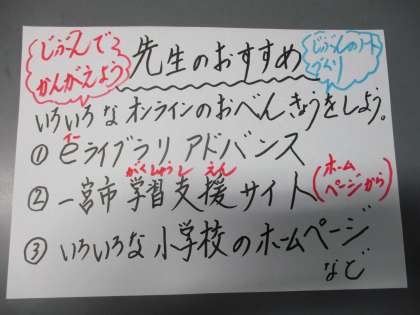 じぶんで
かんがえよう
先生のおすすめ
じぶんのノート
づくり
いろいろなオンラインのおべんきょうをしよう。
① eライブラリアドバンス
イー
② 一宮市学習支援サイト
がくしゅうしえん
(ホーム
ページから)
③ いろいろな小学校のホームページ
など